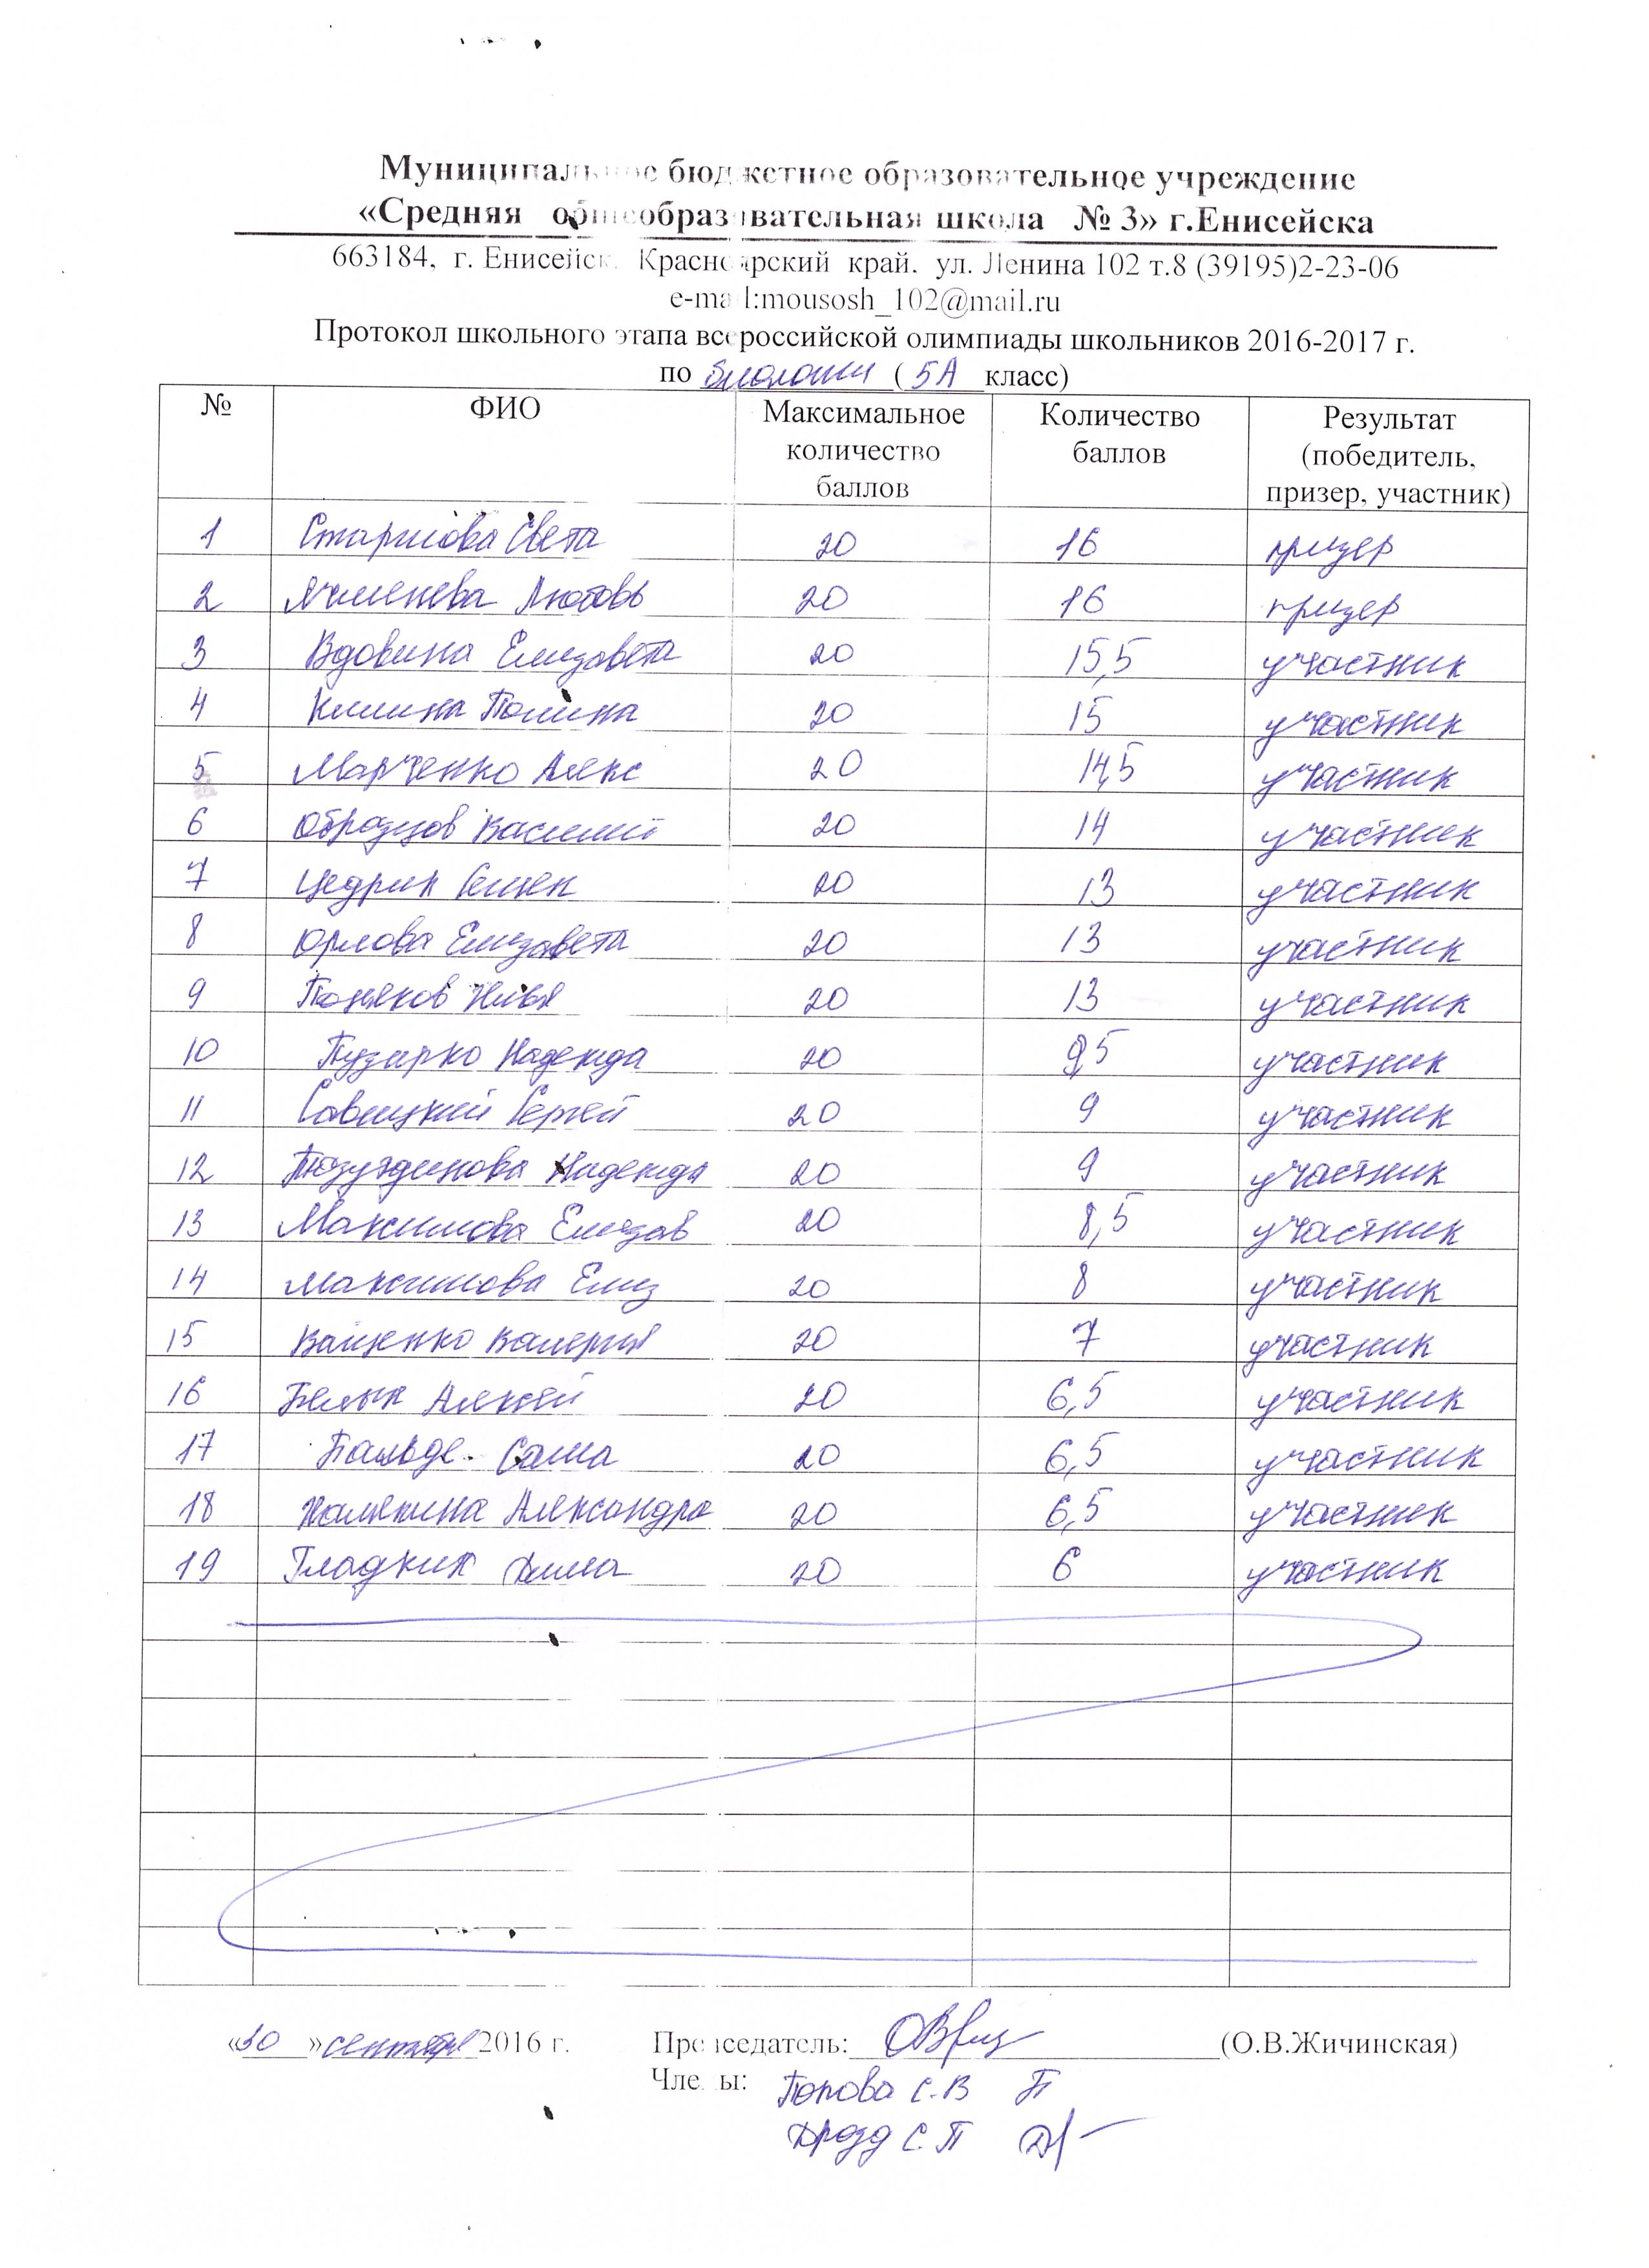 Муниципальное бюджетное образовательное учреждение
«Средняя общеобразовательная школа № 3» г.Енисейска
663184, г. Енисейск. Красноярский край. ул. Ленина 102 т.8 (39195)2-23-06
e-mail:mousosh_102@mail.ru
Протокол школьного этапа всероссийской олимпиады школьников 2016-2017 г.
по биологии (5А класс)
№ ФИО Максимальное количество баллов Количество баллов Результат (победитель, призер, участник)
1 Света 20 16 призер
2 Ячменева Любовь 20 16 призер
3 Вдовина Елизавета 20 15,5 участник
4 Полина 20 15 участник
5 Марченко Алекс 20 14,5 участник
6 Образцов Василий 20 14 участник
7 Цедрик Семен 20 13 участник
8 Орлова Елизавета 20 13 участник
9 Илья 20 13 участник
10 Пузырко Надежда 20 9,5 участник
11 Савицкий Сергей 20 9 участник
12 Надежда 20 9 участник
13 Максимова Елизав 20 8,5 участник
14 Максимова Елиз 20 8 участник
15 Ващенко Валерия 20 7 участник
16 Белык Алексей 20 6,5 участник
17 Саша 20 6,5 участник
18 Александра 20 6,5 участник
19 Гладких Дима 20 6 участник
«30» сентября 2016 г. Председатель: (О.В.Жичинская)
Члены: Попова С.В
Дрозд С.П